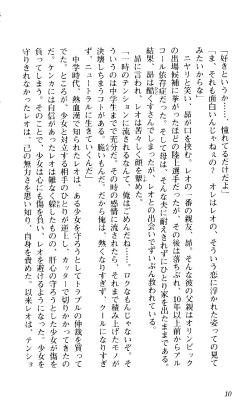 「好きというか……、憧れてるだけだよ」
「ま、それも面白いんじゃねぇの？　オレはレオの、そういう恋に浮かれた姿っての見て
みたいからな」
　ニヤリと笑い、昴が口を挟む。レオの一番の親友、昴。彼の父親はかつてオリンピック
の出場候補に挙がったほどの陸上選手だったが、その後は落ちぶれ、10年以上前からアル
コール依存症だった。そして母は、そんな夫に耐えきれずにひとり家を出たままである。
結果、昴は酷くすさんでしまったが、レオとの出会いでずいぶん救われている。
　昴に言われ、レオは頭を醒めた。
「一時のテンションに流されるなんて、ロクなもんじゃない。そのせいで、全てが台無しに
なってしまうコトがある。そういうのは中学までで充分だ。その時の感情で流されたら、それまで積み上げたモノが
決壊しちまうコトがある。脆いもんだ。だから俺は、熱くなりすぎず、クールになりすぎ
ず、ニュートラルに生きていくんだ」
　中学時代、熱血漢で知られたレオは、ある少女を守ろうとしてトラブルの仲裁を買って
出た。ところが、少女と対立する相手のひとりが逆上し、カッターで切りかかってきたの
だ。ケンカには自信があったレオは難なく躱したものの、肝心の守ろうとした少女が傷を
負ってしまう。そのことで、少女は心にも傷を負い、レオを避けるようになった。少女を
守りきれなかったレオは、己の無力さを思い知り、自身を責めた。以来レオは、テンショ
10